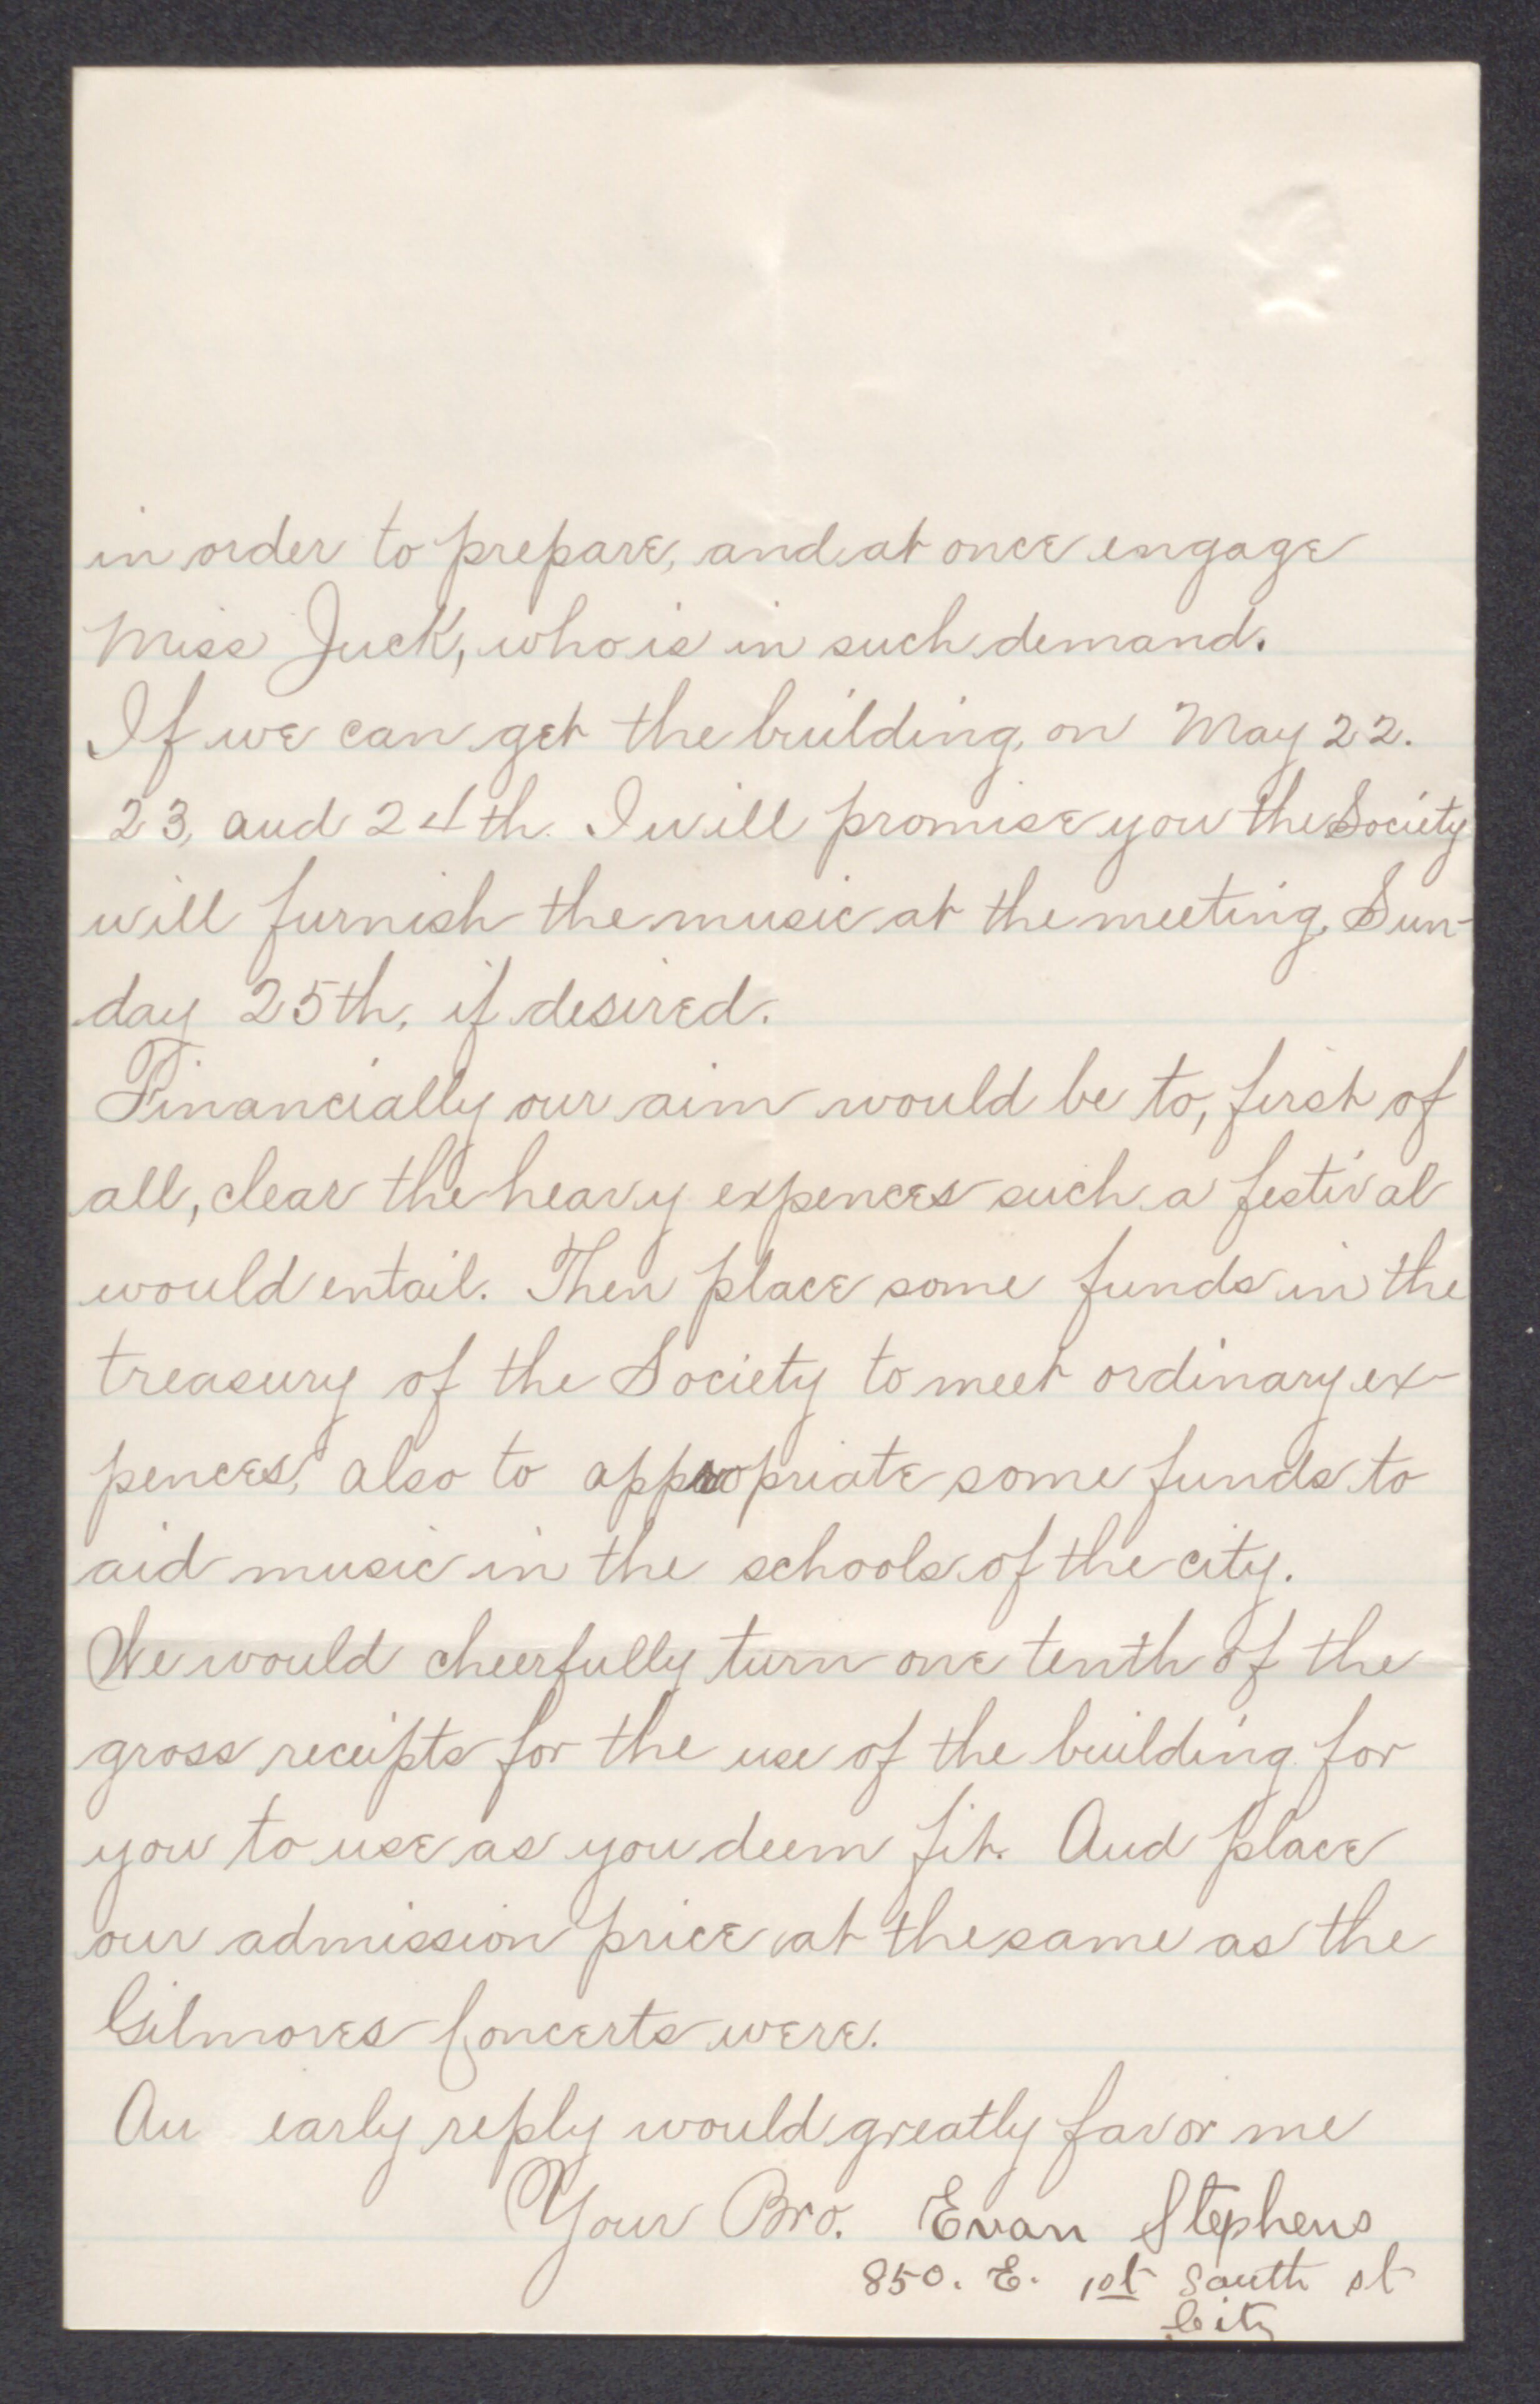 in order to prepare, and at once engage
Miss Juck, who is in such demand.
If we can get the building, on May 22.
23, and 24th. I will promise you the Society
will furnish the music at the meeting, Sun-
day 25th, if desired.
Financially our aim would be to, first of
all, clear the heavy expences such a festival
would entail. Then place some funds in the
treasury of the Society to meet ordinary ex-
pences, also to appropriate some funds to
aid music in the schools of the city.
We would cheerfully turn one tenth of the
gross receipts for the use of the building for
you to use as you deem fit. And place
our admission price at the same as the
Gilmores Concerts were.
An early reply would greatly favor me
Your Bro. Evan Stephens
850. E. 1st South st
City